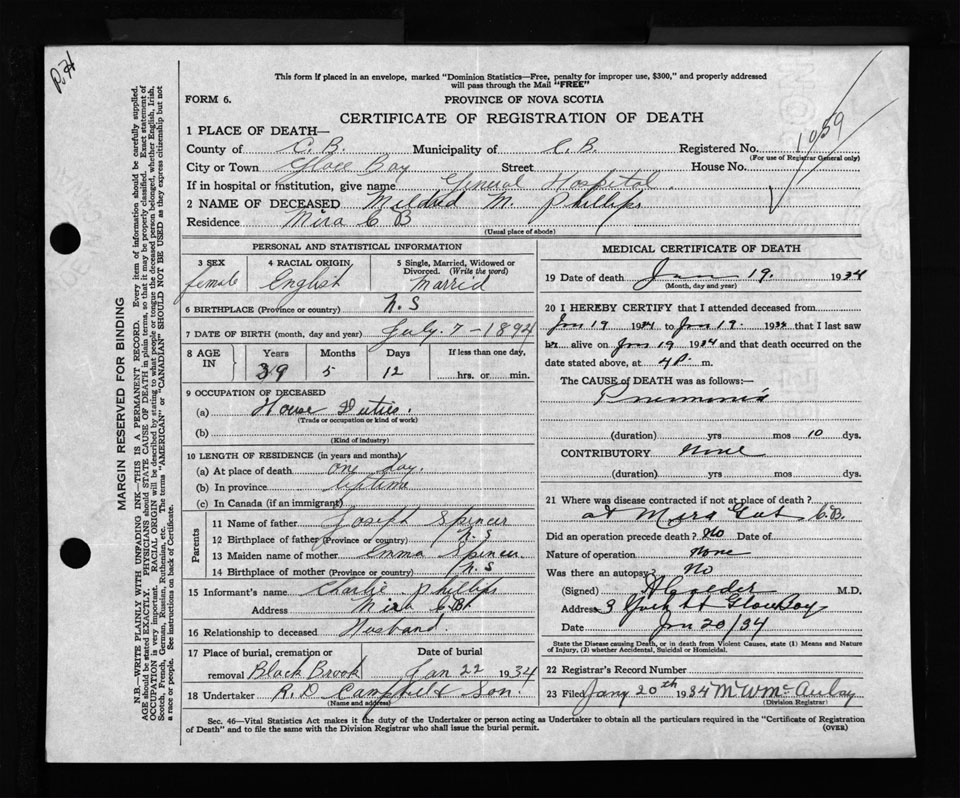 P.H
This form if placed in an envelope, marked "Dominion Statistics—Free, penalty for improper use, $300," and properly addressed
will pass through the Mail "FREE"
FORM 6.
PROVINCE OF NOVA SCOTIA
CERTIFICATE OF REGISTRATION OF DEATH
1 PLACE OF DEATH—
County of C.B. Municipality of C.B. Registered No. 1059
(For use of Registrar General only)
City or Town Glace Bay Street House No.
If in hospital or institution, give name General Hospital.
2 NAME OF DECEASED Mildred M. Phillips
Residence Mira C B
(Usual place of abode)
PERSONAL AND STATISTICAL INFORMATION
3 SEX 4 RACIAL ORIGIN 5 Single, Married, Widowed or
Divorced. (Write the word)
female English Marrid
6 BIRTHPLACE (Province or country) N.S
7 DATE OF BIRTH (month, day and year) July 7-1894
8 AGE IN Years Months Days If less than one day,
39 5 12 hrs. or min.
9 OCCUPATION OF DECEASED
(a) House Duties.
(Trade or occupation or kind of work)
(b)
(Kind of industry)
10 LENGTH OF RESIDENCE (in years and months)
(a) At place of death one day.
(b) In province liftime
(c) In Canada (if an immigrant)
Parents
11 Name of father Joseph Spencer
12 Birthplace of father (Province or country) N.S
13 Maiden name of mother Emma Spencer
14 Birthplace of mother (Province or country) N.S
15 Informant's name Charlie Phillips
Address Mira C.B.
16 Relationship to deceased Husband.
17 Place of burial, cremation or Date of burial
removal Black Brook Jan 22 1934
18 Undertaker R.D Campbell & Son.
(Name and address)
MEDICAL CERTIFICATE OF DEATH
19 Date of death Jan 19. 1934
(Month, day and year)
20 I HEREBY CERTIFY that I attended deceased from
Jan 19 1934 to Jan 19. 1934 that I last saw
her alive on Jan 19 1934 and that death occurred on the
date stated above, at 4 P. m.
The CAUSE OF DEATH was as follows:—
Pneumonia
(duration) yrs mos 10 dys.
CONTRIBUTORY None
(duration) yrs. mos. dys.
21 Where was disease contracted if not at place of death?
at Mira Gut C.B.
Did an operation precede death? No Date of
Nature of operation None
Was there an autopsy? No
(Signed) M.D.
Address 3 York St Glace Bay
Date Jan 20/34
State the Disease causing Death, or in death from Violent Causes, state (1) Means and Nature
of Injury, (2) whether Accidental, Suicidal or Homicidal.
22 Registrar's Record Number
23 Filed Jany 20th 1934 M W McAulay
(Division Registrar)
Sec. 46—Vital Statistics Act makes it the duty of the Undertaker or person acting as Undertaker to obtain all the particulars required in the "Certificate of Registration
of Death" and to file the same with the Division Registrar who shall issue the burial permit.
(OVER)
MARGIN RESERVED FOR BINDING
N.B.—WRITE PLAINLY WITH UNFADING INK—THIS IS A PERMANENT RECORD. Every item of information should be carefully supplied.
AGE should be stated EXACTLY. PHYSICIANS should STATE CAUSE OF DEATH in plain terms, so that it may be properly classified. Exact statement of
OCCUPATION is very important. RACIAL ORIGIN will be described by stating to what people or tongue the deceased person belonged, whether English, Irish,
Scotch, French, German, Russian, Ruthenian, etc. The terms "AMERICAN" or "CANADIAN" SHOULD NOT BE USED as they express citizenship but not
a race or people. See instructions on back of Certificate.